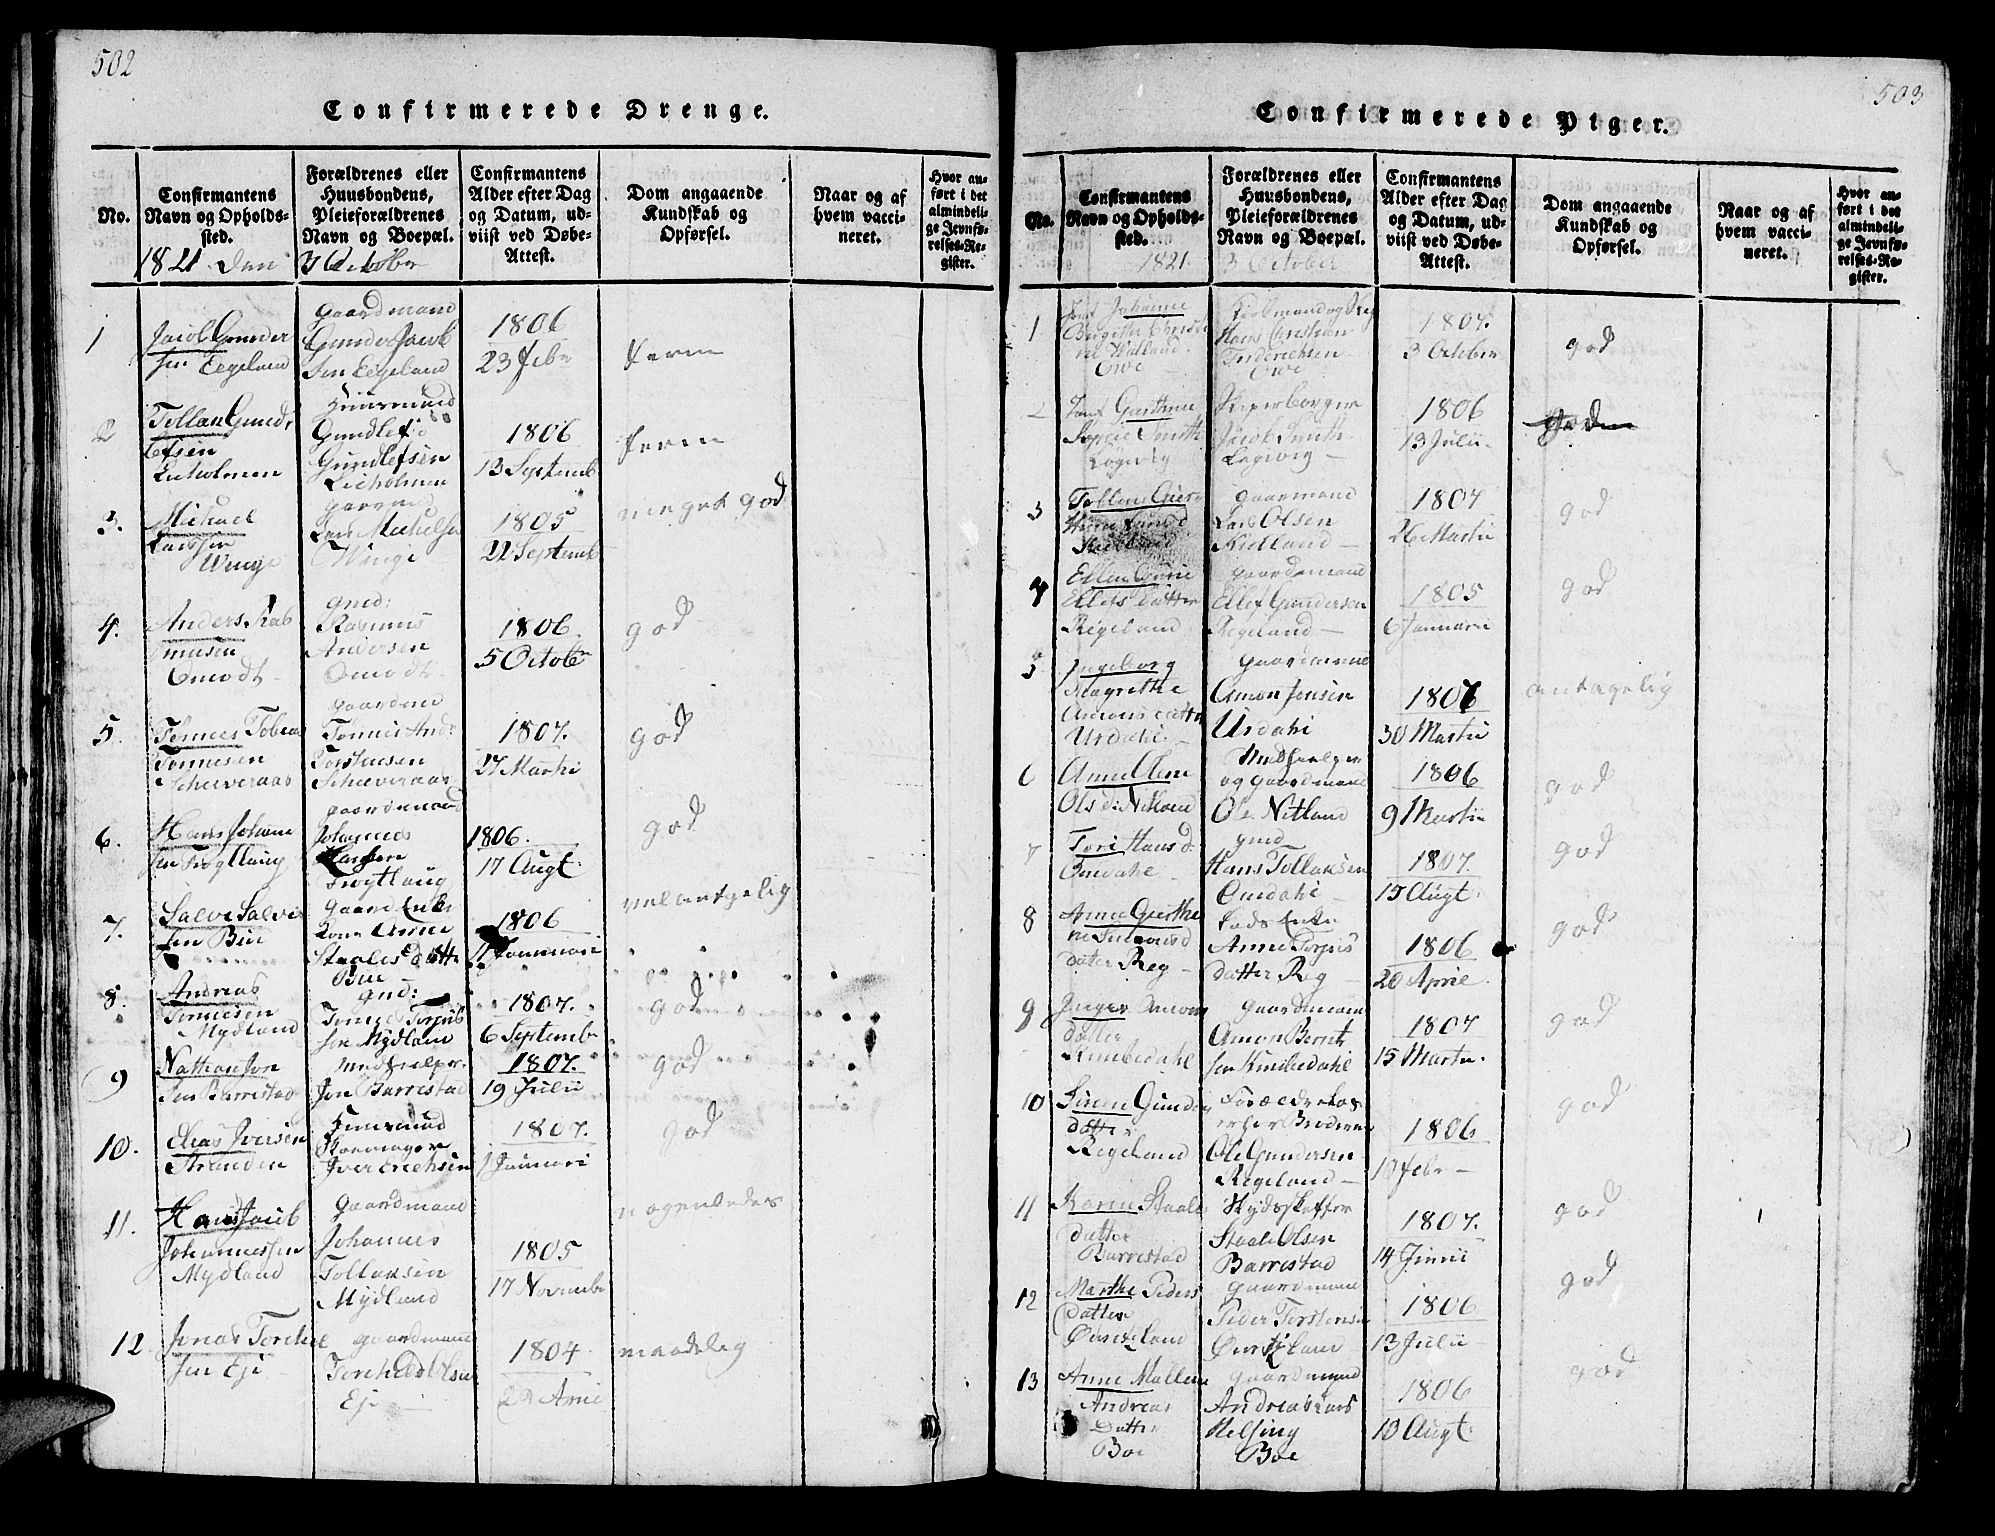 502
Confirmerede Drenge.
No.
Confirmantens
Navn og Opholds-
sted.
Forældrenes eller
Huusbondens,
Pleieforældrenes
Navn og Boepæl.
Confirmantens
Alder efter Dag
og Datum, ud-
viist ved Døbe-
Attest.
Dom angaaende
Kundskab og
Opførsel.
Naar og af
hvem vacci-
neret.
Hvor an-
ført i det
almindeli-
ge Jevnfø-
relses-Re-
gister.
1821 den 3 October
1
Jacob Gunder
sen Eegeland
Gaardmand
Gunder Jacob
sen Eegeland
1806
23 Febr
ferm
2
Tollar Gundl
efsen
Lieholmen
Huusmand
Gundlef
Gundlefsen
Lieholmen
1806
13 Septemb
ferm
3.
Michael
Larssen
Winge
Lars Michelsen
Winge
1805
22 Septemb
meget god
4.
Anders Ras
musen
Omodt
gmd:
Rasmus
Andersen
Omodt
1806
5 Octobr
god
5.
Tønnes Tobias
Tønnesen
Scheveraas
Gaardm
Tønnes And
Torstensen
Scheveraas
1807.
27 Martii
god
6.
Hans Johanne
sen Frøytlaug
gaardmand
Johannes
Hansen
Frøytlaug
1806.
17 Augt
god
7.
Salve Salve
sen Bue
Gaard Enke
Kone Anne
Staalesdatter
Bue
1806
11 Januarii
velantagelig
8.
Andreas
Tønnesen
Mydland
gmd:
Tønnes Torjus
sen Mydland
1807.
6 Septemb
god
9
Nathan Jon
sen Barrestad
Medhielpr.
Jon Barrestad
1807.
19 Julii
god
10.
Elias Iversen
Stranden
Huusmand
Iver Erichsen
1807.
1 Januari
god
11.
Hans Jacob
Johannessen
Mydland
Gaardmand
Johannes
Tollaksen
Mydland
1805
17 Novembr
nogenledes
12.
Jonas Torchel
sen Eje
gaardmand
Torchel Olsen
Eje
1804
maadelig
503
Confirmerede Piger.
No.
Confirmantens
Navn og Opholds-
sted.
Forældrenes eller
Huusbondens,
Pleieforældrenes
Navn og Boepæl.
Confirmantens
Alder efter Dag
og Datum, ud-
viist ved Døbe-
Attest.
Dom angaaende
Kundskab og
Opførsel.
Naar og af
hvem vacci-
neret.
Hvor an-
ført i det
almindeli-
ge Jevnfø-
relses-Re-
gister.
1821. 3 October
1
Jomf Johanne
Birgitte Christi
ne Watland
Owe
Hans Christian
Friderichsen
Owe
1807.
3 October
god
2
Jomf Gurthine
Sophie Smith
Logevig
Skiperborger
Jacob Smith
Logevig
1806
13 Julii
3
Tolline
Kielland
gaarmand
Lars Olsen
Kielland
1807
26 Martii
god
4
Ellen Gurie
Ellefs datter
Rigeland
gaardmand
Ellef Gundersen
Rigeland
1805
6 Januarii
god
5
Ingeborg
Magrethe
Amons datter
Urdahl
Gaardmand
Amon Jonsen
Urdahl
1807
30 Martii
antagelig
6
Anne Oline
Ols d: Nitland
Medhielper
og gaardmand
Ole Nitland
1806
9 Martii
god
7
Tori Hans d:
Omdahl
gmd
Hans Tollaksen
Omdahl
1807.
15 Augt
god
8
Anne Gurthe
ne Simons
datter Reg
Enke
Anne Torjus
datter Reg
1806
20 April
god
9
Inger Amons
datter
Kumledahl
Gaardmand
Amon Bernt
sen Kumledahl
1807
15 Martii
god
10
Siren Gunders
datter
Rigeland
Forældreløs
er hos Broderen
Ole Gundersen
Rigeland
1806
Febr
god
11
Karen Staale
datter
Barrestad
Skydsskaffer
Staale Olsen
Barrestad
1807.
14 Junii
god
12
Marthe Peders
datter
Ørsland
Gaardmand
Peder Torstensen
Ørsland
1806
13 Julii
god
13
Anne Mallene
Andreas
Datter
Boe
Gaardmand
Andreas Lars
Helsing
Boe
1806
10 Augt
god